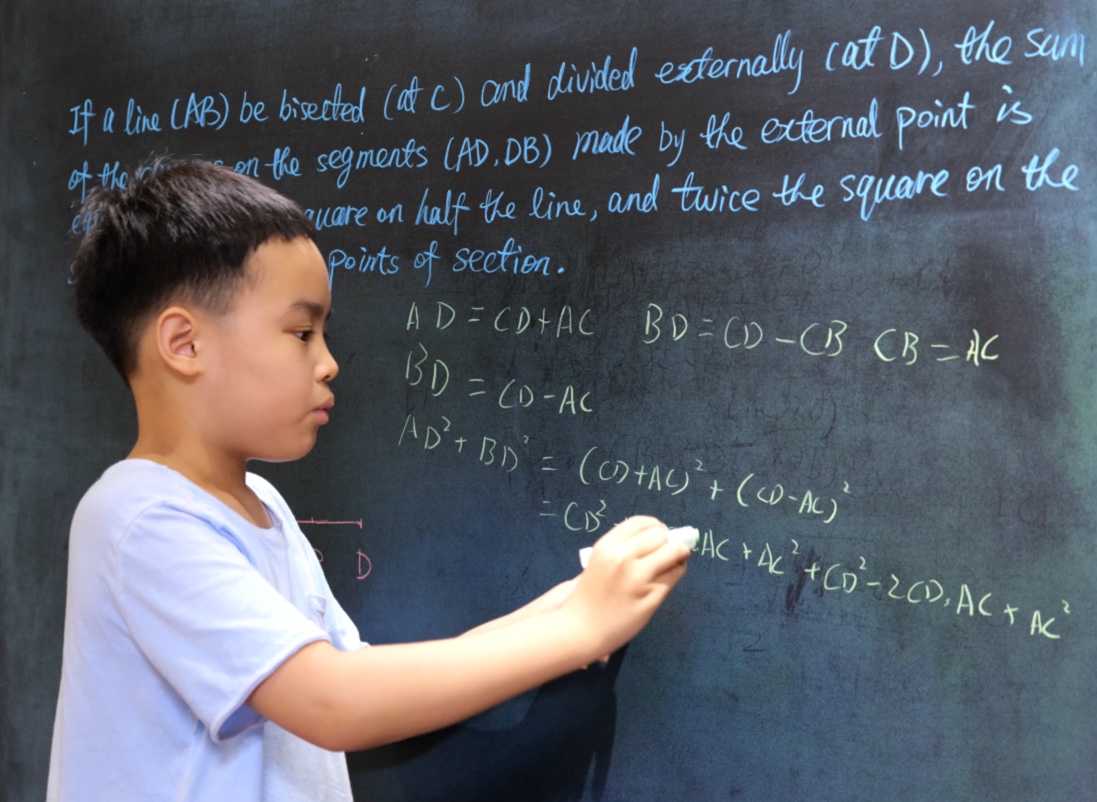 If a line (AB) be bisected (at C) and divided externally (at D), the sum
of the on the segments (AD, DB) made by the external point is
on half the line, and twice the square on the
points of section.
AD = CD+AC BD = CD - CB CB = AC
BD = CD - AC
AD² + BD² = (CD+AC)² + (CD-AC)²
= CD² AC + AC² + CD² - 2CD.AC + AC²
D